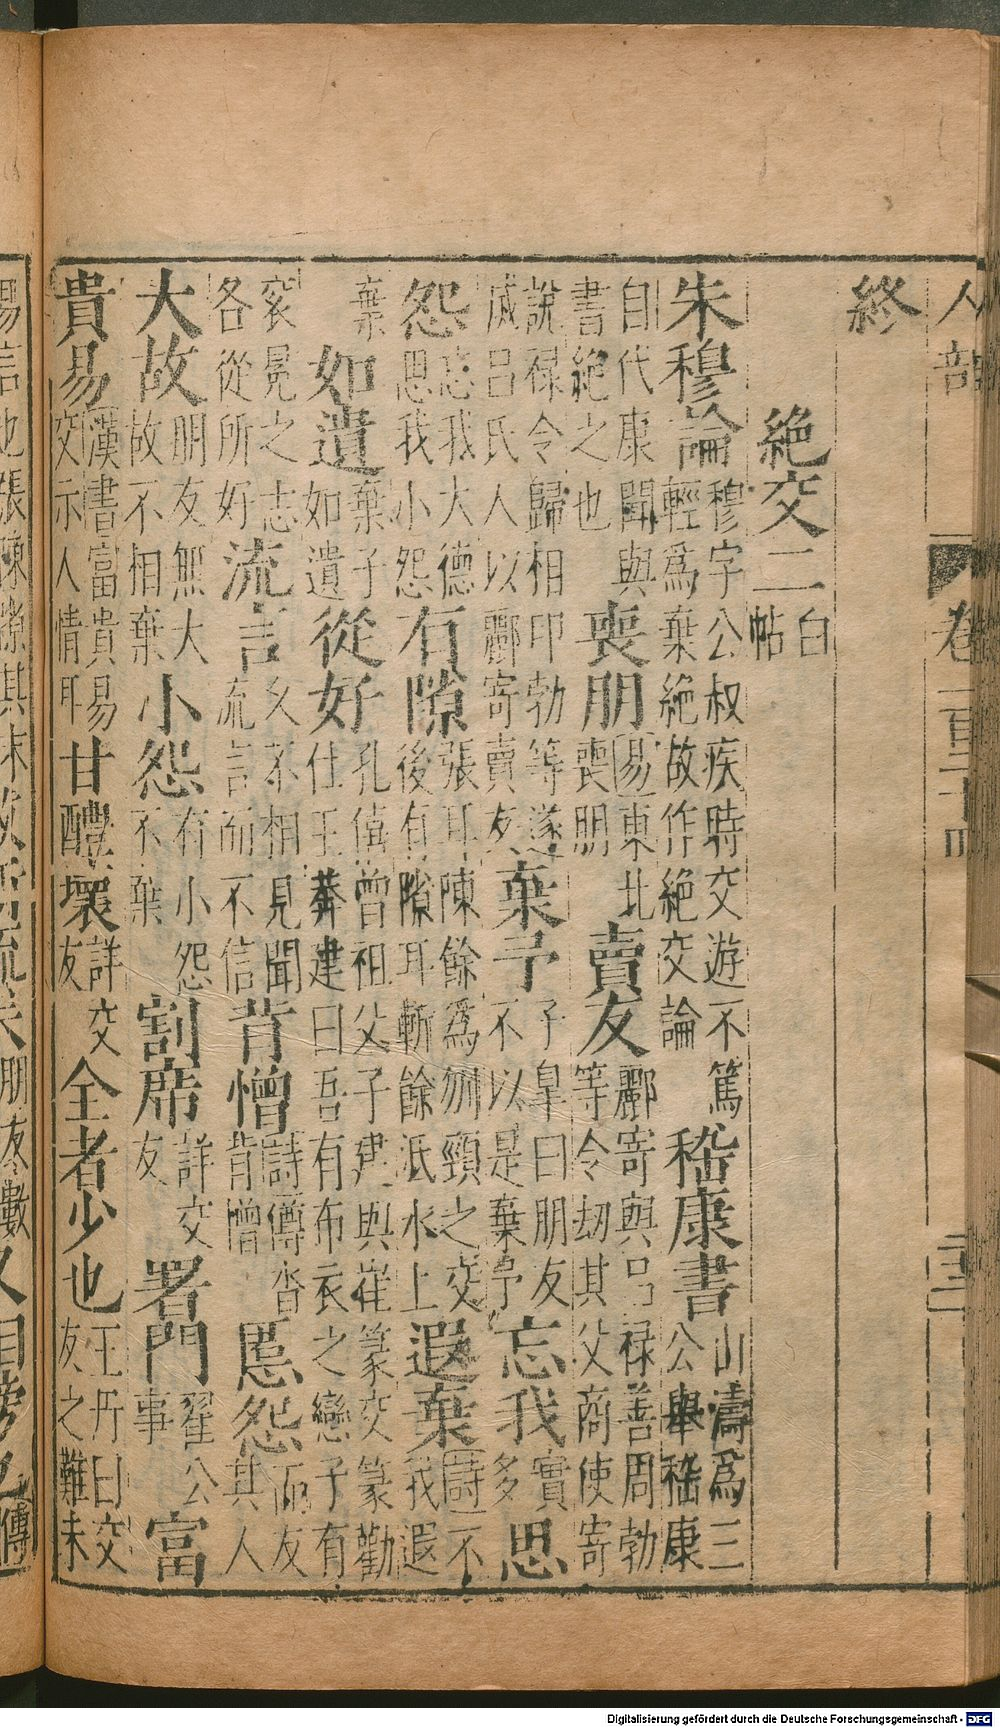 人部
終
絕交二 白帖
朱穆論 穆字公叔疾時交遊不篤輕為棄絕故作絕交論 嵇康書 山濤為三公舉嵇康
自代康聞與書絕之也 喪朋 易東北喪朋 賣友 酈寄與吕祿善周勃等令劫其父商使寄
說祿令歸相印勃等遂滅呂氏人以酈寄賣友 棄予 子臯曰朋友不以是棄予 忘我 實多 思
怨 忘我大德思我小怨 有隙 張耳陳餘為刎頸之交後有隙耳斬餘泜水上 遐棄 詩不我遐
棄 如遺 棄予如遺 從好 孔僖曾祖父子建與崔篆交篆勸仕王莽建曰吾有布衣之戀子有
衮冕之志各從所好 流言 久不相見聞流言而不信 背憎 詩僔沓背憎 匿怨 而友其人
大故 朋友無大故故不相棄 小怨 有小怨不棄 割席 詳交友 署門 翟公事 富
貴易 漢書富貴易交示人情耳 甘醴壞 詳交友 全者少也 王丹曰交友之難未
Digitalisierung gefördert durch die Deutsche Forschungsgemeinschaft - DFG